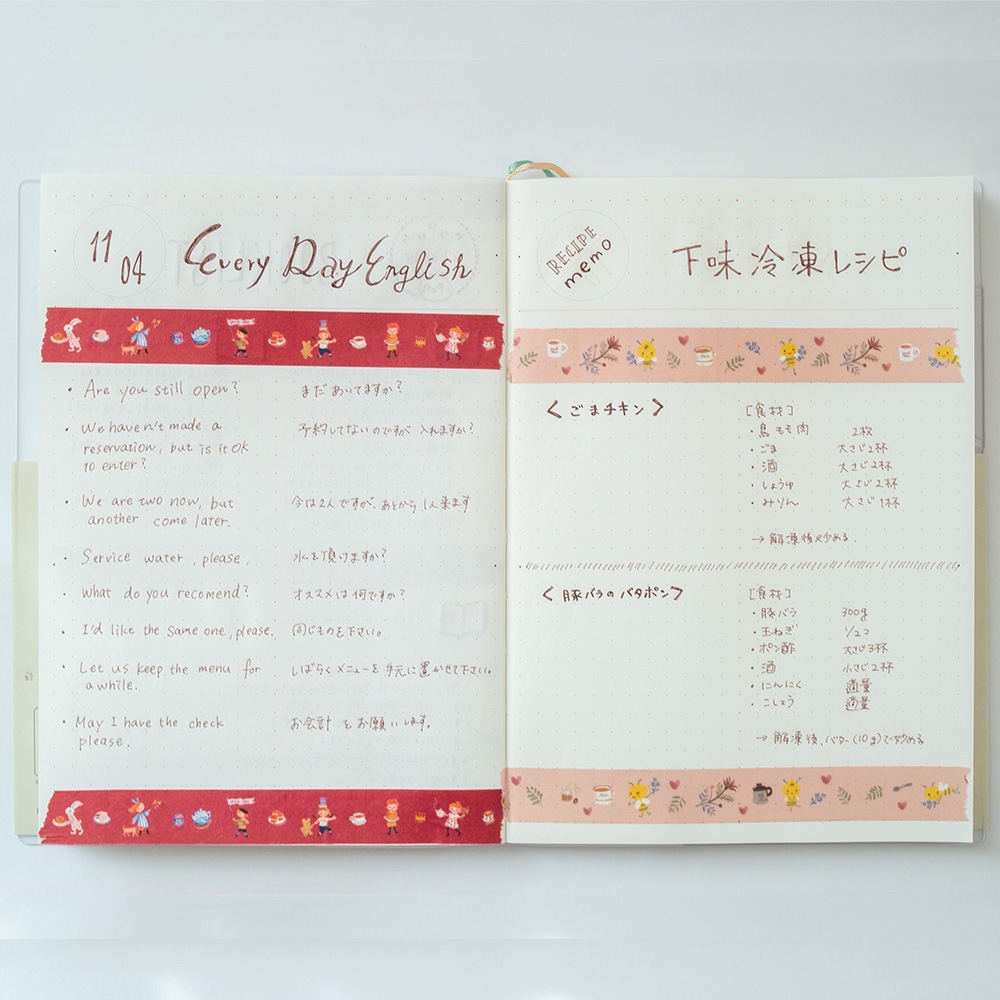 11
04
Every Day English
・Are you still open?
まだ あいてますか?
・We haven't made a
reservation, but is it OK
to enter?
予約してないのですが 入れますか?
・We are two now, but
another come later.
今は2人ですが、あとから 1人来ます
・Service water, please.
水を頂けますか?
・What do you recomend?
オススメは何ですか?
・I'd like the same one, please.
同じものを下さい。
・Let us keep the menu for
a while.
しばらくメニューを手元に置かせて下さい。
・May I have the check
please.
お会計をお願いします。
RECIPE
memo
下味冷凍レシピ
〈ごまチキン〉
[食材]
・鳥もも肉 2枚
・ごま 大さじ2杯
・酒 大さじ2杯
・しょうゆ 大さじ2杯
・みりん 大さじ1杯
→解凍後炒める.
〈豚バラのバタポン〉
[食材]
・豚バラ 300g
・玉ねぎ 1/2コ
・ポン酢 大さじ3杯
・酒 小さじ2杯
・にんにく 適量
・こしょう 適量
→解凍後、バター(10g)で炒める